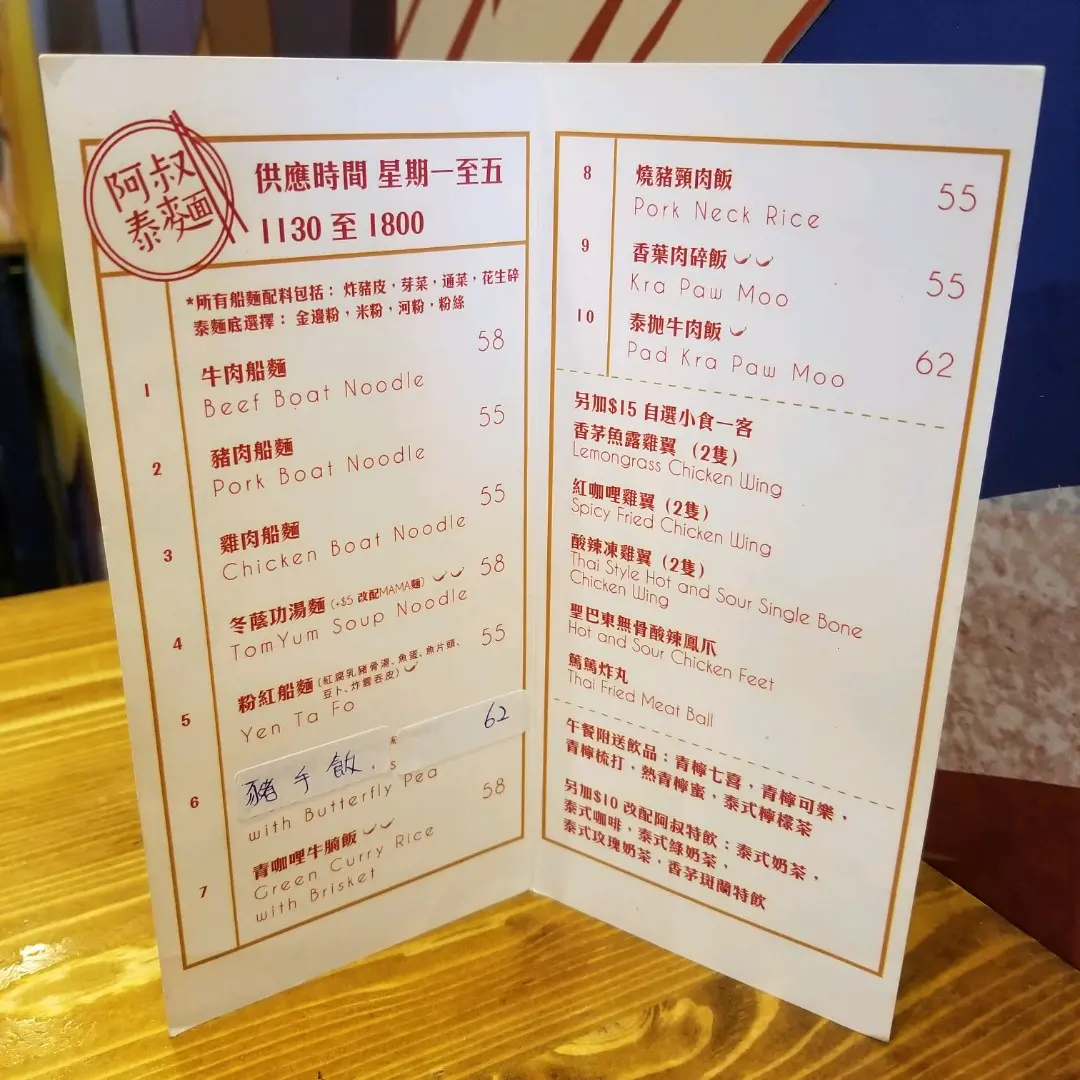 阿叔
泰麵
供應時間 星期一至五
1130 至 1800
*所有船麵配料包括： 炸豬皮，芽菜，通菜，花生碎
泰麵底選擇： 金邊粉，米粉，河粉，粉絲
1 牛肉船麵 58
Beef Boat Noodle
2 豬肉船麵 55
Pork Boat Noodle
3 雞肉船麵 55
Chicken Boat Noodle
4 冬蔭功湯麵 (+$5 改配MAMA麵) 58
TomYum Soup Noodle
5 粉紅船麵 (紅腐乳豬骨湯、魚蛋、魚片頭、 55
豆卜、炸雲吞皮)
Yen Ta Fo
6 豬手飯. 62
s
with Butterfly Pea
7 青咖哩牛腩飯 58
Green Curry Rice
with Brisket
8 燒豬頸肉飯 55
Pork Neck Rice
9 香葉肉碎飯 55
Kra Paw Moo
10 泰抛牛肉飯 62
Pad Kra Paw Moo
另加$15 自選小食一客
香茅魚露雞翼 (2隻)
Lemongrass Chicken Wing
紅咖哩雞翼 (2隻)
Spicy Fried Chicken Wing
酸辣凍雞翼 (2隻)
Thai Style Hot and Sour Single Bone
Chicken Wing
聖巴東無骨酸辣鳳爪
Hot and Sour Chicken Feet
篤篤炸丸
Thai Fried Meat Ball
午餐附送飲品：青檸七喜，青檸可樂，
青檸梳打，熱青檸蜜，泰式檸檬茶
另加$10 改配阿叔特飲：泰式奶茶，
泰式咖啡，泰式綠奶茶，
泰式玫瑰奶茶，香茅斑蘭特飲